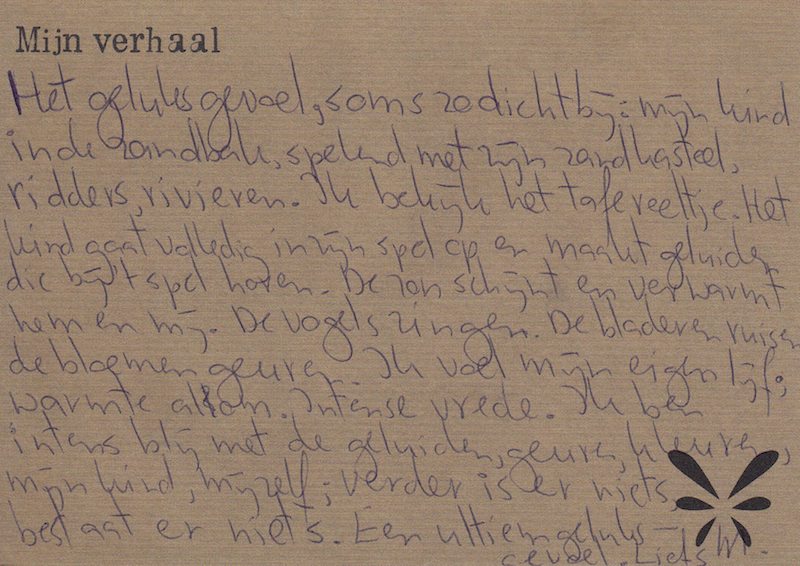 Mijn verhaal
Het geluksgevoel, soms zo dichtbij: mijn kind
in de zandbak, spelend met zijn zandkasteel,
ridders, rivieren. Ik bekijk het tafereeltje. Het
kind gaat volledig in zijn spel op en maakt geluiden
die bij 't spel horen. De zon schijnt en verwarmt
hem en mij. De vogels zingen. De bladeren ruisen
de bloemen geuren. Ik voel mijn eigen lijf;
warmte alom. Intense vrede. Ik ben
intens blij met de geluiden, geuren, kleuren,
mijn kind, mijzelf; verder is er niets,
bestaat er niets. Een ultiem geluks-
gevoel. Liefs M.